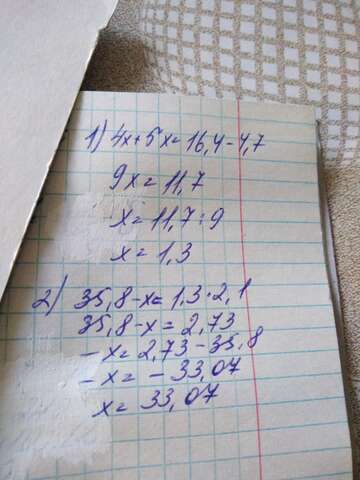 1) 4x+5x=16,4-4,7
9x=11,7
x=11,7:9
x=1,3
2) 35,8-x=1,3·2,1
35,8-x=2,73
-x=2,73-35,8
-x=-33,07
x=33,07